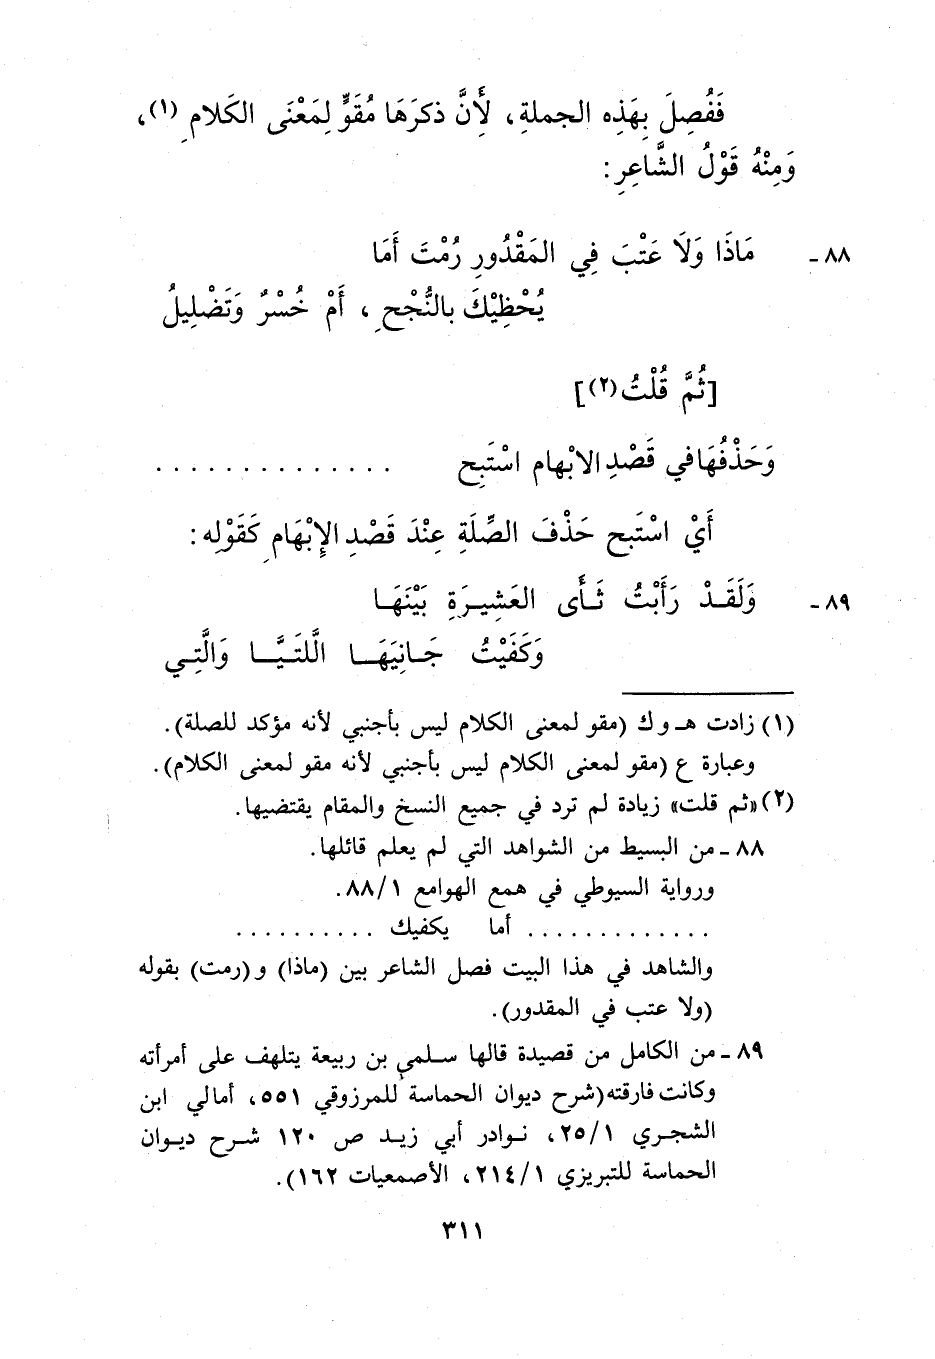 فَفُصِلَ بِهَذِه الجملةِ، لِأَنَّ ذكرَهَا مُقَوٍّ لِمَعْنَى الكَلامِ (١)،
وَمِنْهُ قَوْلُ الشَّاعِرِ:
٨٨ - مَاذَا وَلَا عَتْبَ فِي المَقْدُورِ رُمْتَ أَمَا
يُحْظِيْكَ بالنُّجْحِ ، أَمْ خُسْرٌ وَتَضْلِيلُ
[ثُمَّ قُلْتُ(٢)]
وَحَذْفُهَا في قَصْدِ الابْهام اسْتَبِح . . . . . . . . . . . . . .
أَيْ اسْتَبح حَذْفَ الصِّلَةِ عِنْدَ قَصْدِ الإِبْهَامِ كَقَوْلِه:
٨٩ - وَلَقَـدْ رَأَبْتُ ثَـأَى العَشِيـرَةِ بَيْنَهَـا
وَكَفَيْتُ جَـانِيَهَـــا الَّلتَـيَّـــا وَالَّتِـي
(١) زادت هـ و ك (مقو لمعنى الكلام ليس بأجنبي لأنه مؤكد للصلة).
وعبارة ع (مقو لمعنى الكلام ليس بأجنبي لأنه مقو لمعنى الكلام).
(٢) «ثم قلت» زيادة لم ترد في جميع النسخ والمقام يقتضيها.
٨٨ - من البسيط من الشواهد التي لم يعلم قائلها.
ورواية السيوطي في همع الهوامع ٨٨/١.
. . . . . . . . . . . . . أما يكفيك . . . . . . . . . .
والشاهد في هذا البيت فصل الشاعر بين (ماذا) و(رمت) بقوله
(ولا عتب في المقدور).
٨٩ - من الكامل من قصيدة قالها سـلمي بن ربيعة يتلهف على أمرأته
وكانت فارقته (شرح ديوان الحماسة للمرزوقي ٥٥١، أمالي ابن
الشجـري ٢٥/١، نـوادر أبي زيـد ص ١٢٠ شـرح ديـوان
الحماسة للتبريزي ٢١٤/١، الأصمعيات ١٦٢).
٣١١